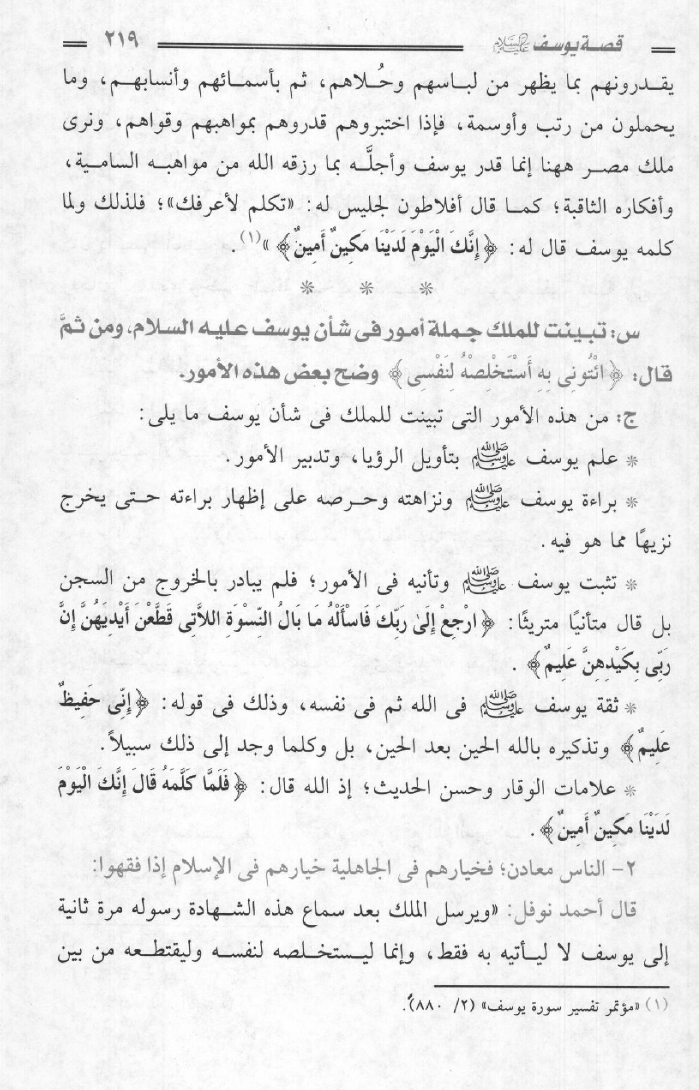 قصة يوسف عليه السلام ٢١٩
يقدرونهم بما يظهر من لباسهم وحُلاهم، ثم بأسمائهم وأنسابهم، وما
يحملون من رتب وأوسمة، فإذا اختبروهم قدروهم بمواهبهم وقواهم، ونرى
ملك مصر ههنا إنما قدر يوسف وأجلَّه بما رزقه الله من مواهبه السامية،
وأفكاره الثاقبة؛ كما قال أفلاطون لجليس له: «تكلم لأعرفك»؛ فلذلك ولما
كلمه يوسف قال له: ﴿إِنَّكَ الْيَوْمَ لَدَيْنَا مَكِينٌ أَمِينٌ﴾»(١).
* * *
س: تبينت للملك جملة أمور فى شأن يوسف عليه السلام، ومن ثمَّ
قال: ﴿ائْتُونِى بِهِ أَسْتَخْلِصْهُ لِنَفْسِى﴾ وضح بعض هذه الأمور.
ج: من هذه الأمور التى تبينت للملك فى شأن يوسف ما يلى:
* علم يوسف ﷺ بتأويل الرؤيا، وتدبير الأمور.
* براءة يوسف ﷺ ونزاهته وحرصه على إظهار براءته حتى يخرج
نزيهًا مما هو فيه.
* تثبت يوسف ﷺ وتأنيه فى الأمور؛ فلم يبادر بالخروج من السجن
بل قال متأنيًا متريثًا: ﴿ارْجِعْ إِلَىٰ رَبِّكَ فَاسْأَلْهُ مَا بَالُ النِّسْوَةِ اللاَّتِى قَطَّعْنَ أَيْدِيَهُنَّ إِنَّ
رَبِّى بِكَيْدِهِنَّ عَلِيمٌ﴾.
* ثقة يوسف ﷺ فى الله ثم فى نفسه، وذلك فى قوله: ﴿إِنِّى حَفِيظٌ
عَلِيمٌ﴾ وتذكيره بالله الحين بعد الحين، بل وكلما وجد إلى ذلك سبيلاً.
* علامات الوقار وحسن الحديث؛ إذ الله قال: ﴿فَلَمَّا كَلَّمَهُ قَالَ إِنَّكَ الْيَوْمَ
لَدَيْنَا مَكِينٌ أَمِينٌ﴾.
٢- الناس معادن؛ فخيارهم فى الجاهلية خيارهم فى الإسلام إذا فقهوا:
قال أحمد نوفل: «ويرسل الملك بعد سماع هذه الشهادة رسوله مرة ثانية
إلى يوسف لا ليأتيه به فقط، وإنما ليستخلصه لنفسه وليقتطعه من بين
(١) «مؤتمر تفسير سورة يوسف» (٢/ ٨٨٠).